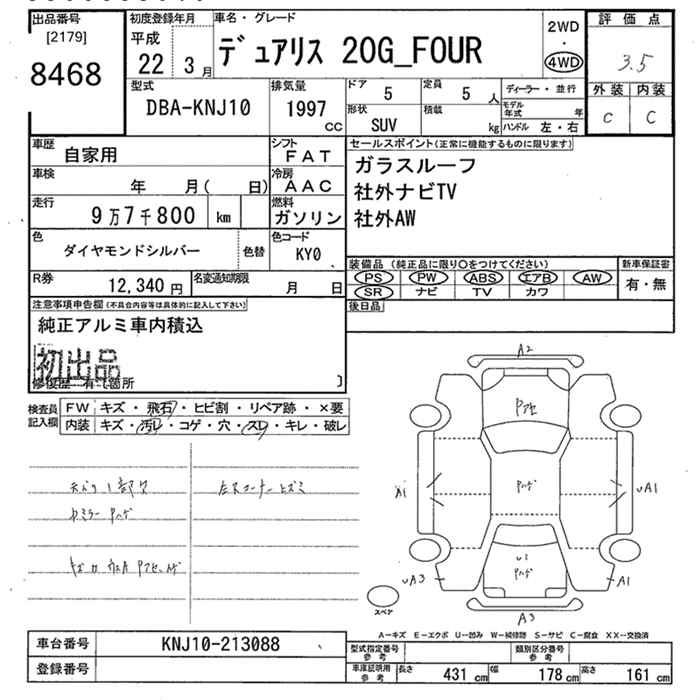 出品番号
[2179]
8468
初度登録年月
平成
22 3月
車名・グレード
デュアリス 20G_FOUR
2WD
・
4WD
評価点
3.5
外装 内装
C C
型式
DBA-KNJ10
排気量
1997
CC
ドア
5
定員
5 人
形状
SUV
積載
kg
ディーラー・並行
モデル年式 年
ハンドル 左・右
車歴
自家用
シフト
FAT
車検
年 月( 日)
冷房
AAC
走行
9万7千800 km
燃料
ガソリン
色
ダイヤモンドシルバー
色替
色コード
KY0
R券
12,340円
名変通知期限
月 日
セールスポイント(正常に機能するものに限ります)
ガラスルーフ
社外ナビTV
社外AW
装備品 (純正品に限り○をつけてください)
PS PW ABS エアB AW
SR ナビ TV カワ
新車保証書
有・無
後日品
注意事項申告欄(不具合内容等は具体的に記入して下さい)
純正アルミ車内積込
初出品
修復歴 有 箇所
検査員
記入欄
FW キズ・飛石・ヒビ割・リペア跡・×要
内装 キズ・汚レ・コゲ・穴・スレ・キレ・破レ
A2
A1
UA1
UA3
A1
A3
スペア
A-キズ E-エクボ U-凹み W-補修跡 S-サビ C-腐食 XX-交換済
車台番号
KNJ10-213088
登録番号
型式指定番号
参考
類別区分番号
参考
車庫証明用
参考
長さ 431 cm 幅 178 cm 高さ 161 cm